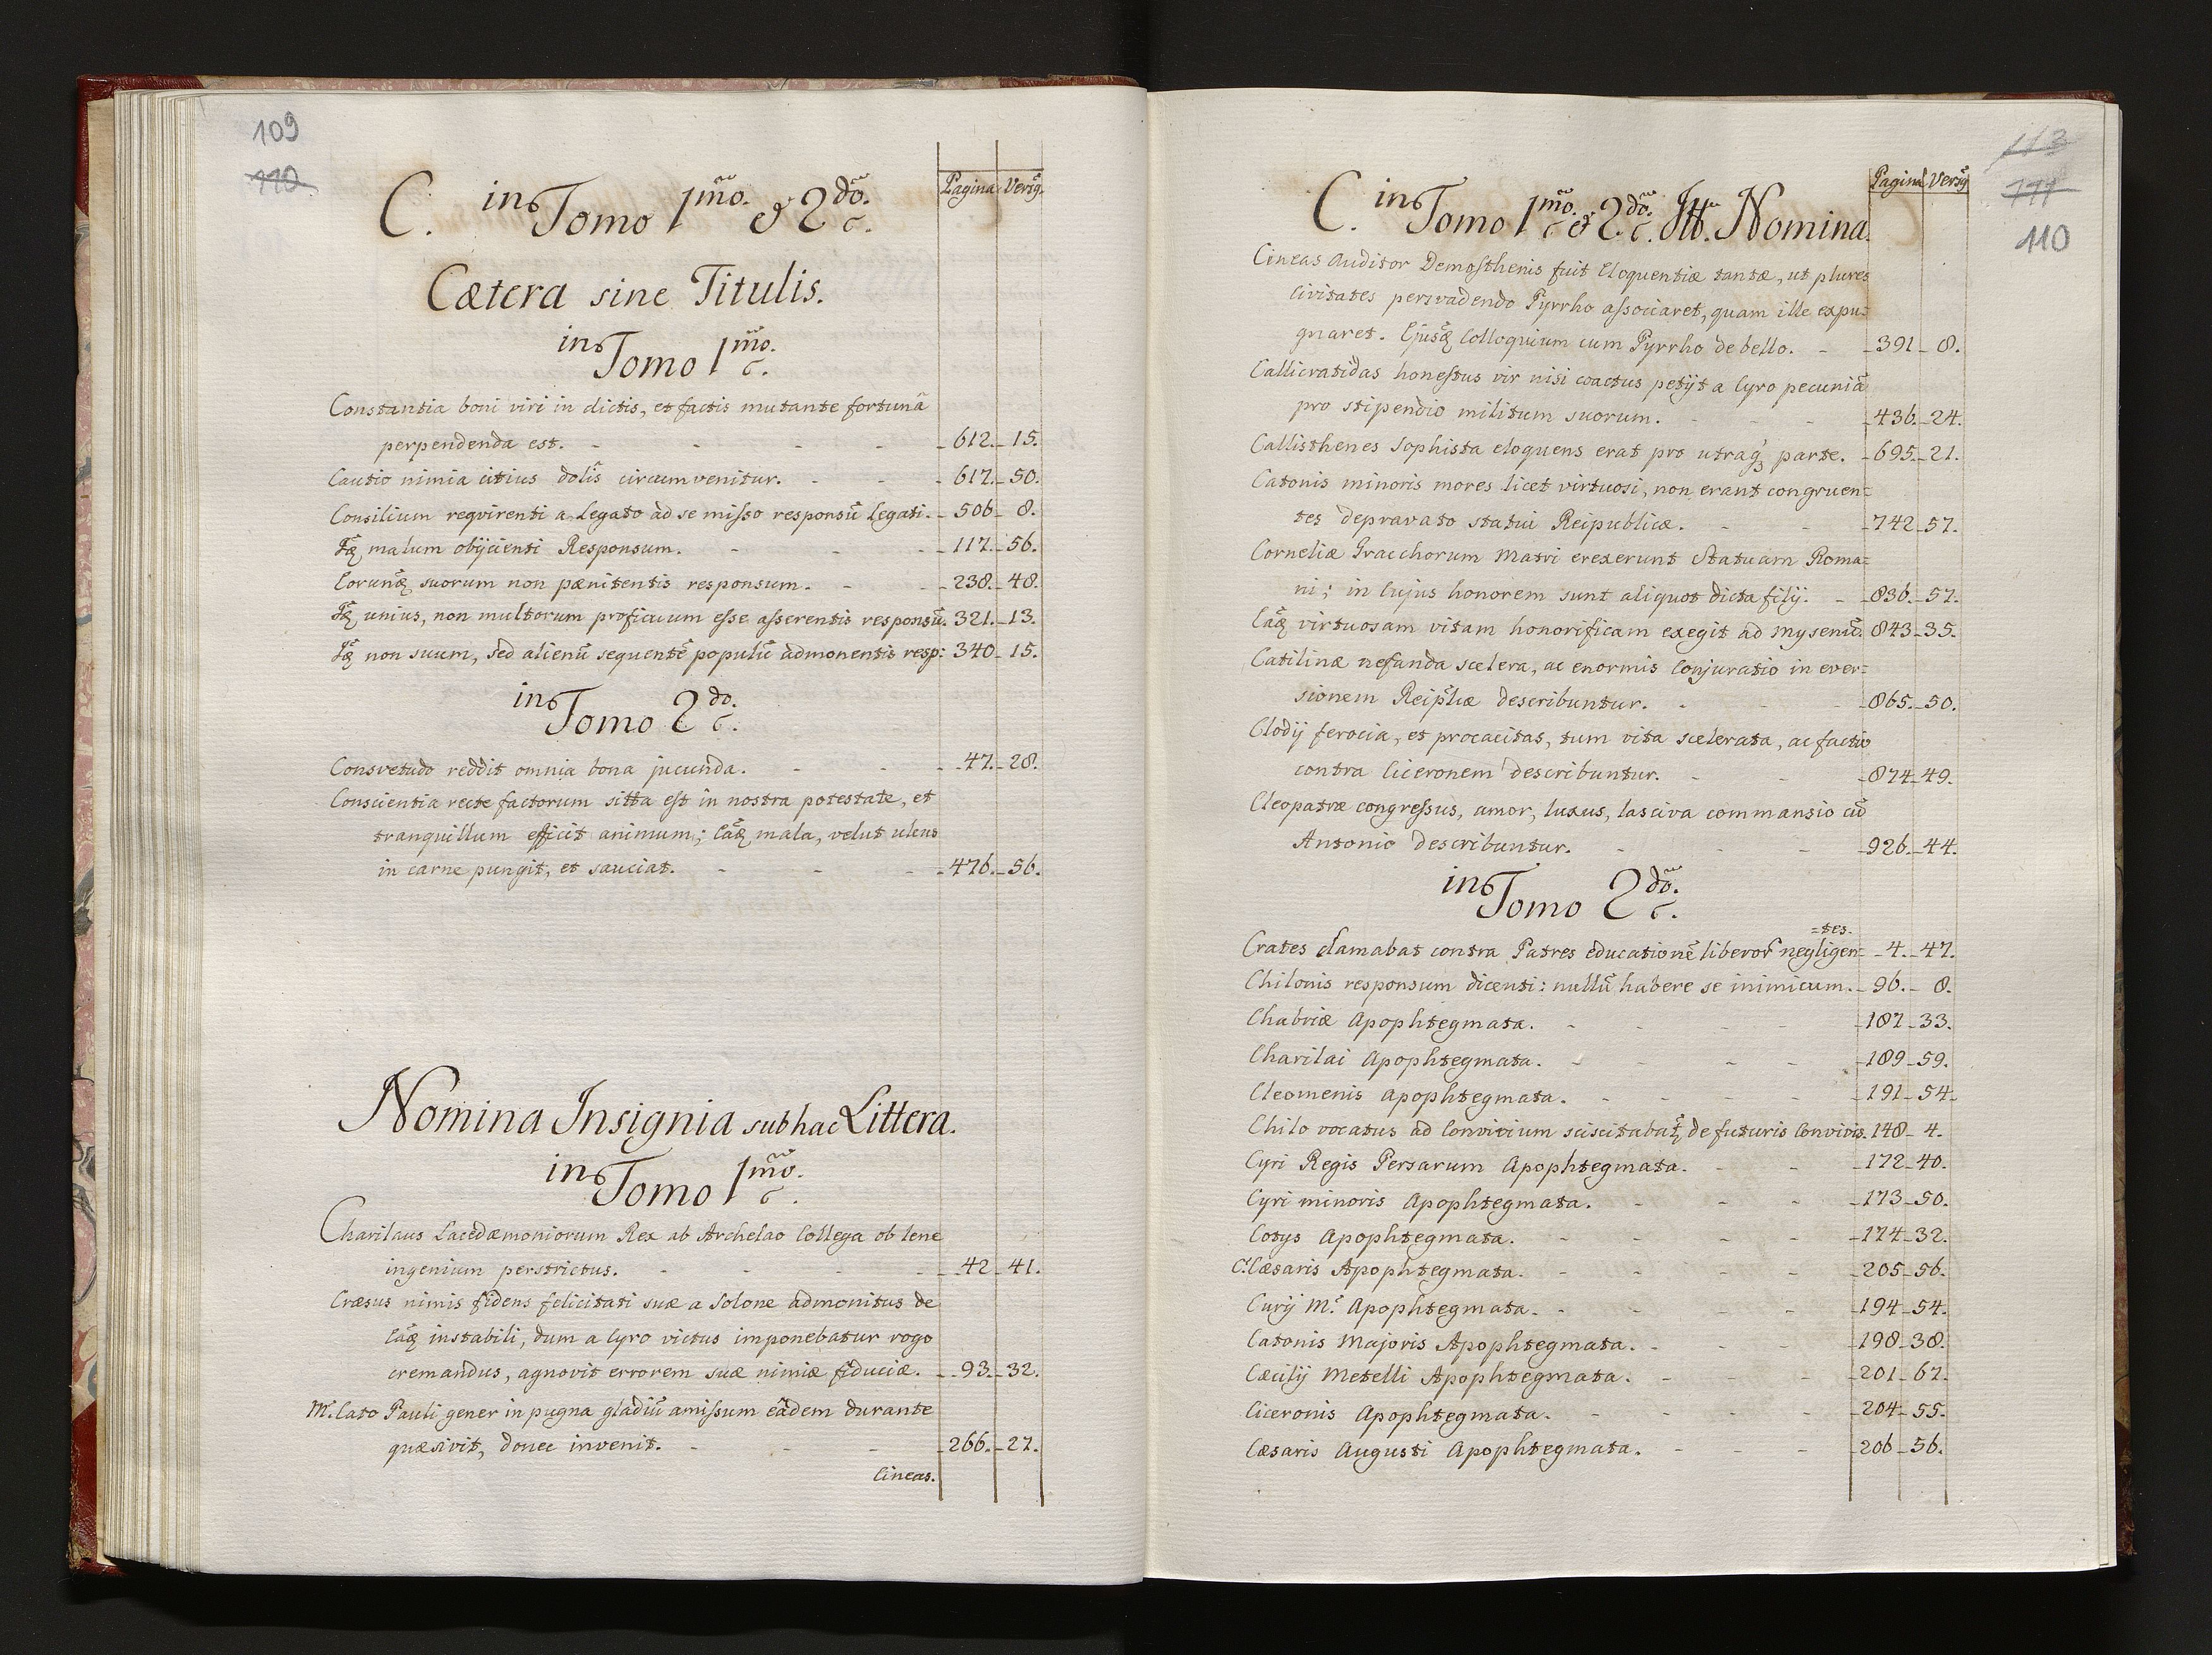 109
110
C. in Tomo 1mo. & 2do.
Pagina Versq.
Cætera sine Titulis.
in Tomo 1mo.
Constantia boni viri in dictis, et factis mutante fortunā
perpendenda est. - - - - 612. - 15.
Cautio nimia citius dolis circumvenitur. - - - 617. - 50.
Consilium reqvirenti a Legato ad se misso responsū Legati. - 506 - 8.
malum obijcienti Responsum. - - - 117. - 56.
suorum non pænitentis responsum. - - 238. - 48.
unius, non multorum proficuum esse asserentis responsū. 321. - 13.
non suum, sed alienū sequentē populū admonentis resp: 340 - 15.
in Tomo 2do.
Consvetudo reddit omnia bona jucunda. - - - 47. - 28.
Conscientia recte factorum sitta est in nostra potestate, et
tranquillum efficit animum; mala, velut ulcus
in carne pungit, et sauciat. - - - 476. - 56.
Nomina Insignia sub hac Littera.
in Tomo 1mo.
Charilaus Lacedæmoniorum Rex ab Archelao Collega ob lene
ingenium perstrictus. - - - - 42 - 41.
Cræsus nimis fidens felicitati suæ a Solone admonitus de
instabili, dum a Cyro victus imponebatur rogo
cremandus, agnovit errorem suæ nimiæ fiduciæ. - 93. - 32.
M. Cato Pauli gener in pugna gladiū amissum eādem durante
quæsivit, donec invenit. - - - 266. - 27.
Cineas.
113
111
110
C. in Tomo 1mo. & 2do. Itt. Nomina.
Pagina Versq
Cineas Auditor Demosthenis fuit Eloquentiæ tantæ, ut plures
Civitates persvadendo Pyrrho associaret, quam ille expu=
gnaret. Ejusq Colloquium cum Pyrrho de bello. - - 391 - 8.
Callicratidas honestus vir nisi coactus petijt a Cyro pecuniā
pro stipendio militum suorum. - - - 436. - 24.
Callisthenes Sophista eloquens erat pro utraq3 parte. - 695. - 21.
Catonis minoris mores licet virtuosi, non erant congruen=
tes depravato statui Reipublicæ. - - - 742 - 57.
Corneliæ Gracchorum Matri erexerunt Statuam Roma=
ni; in Cujus honorem sunt aliquot dicta filij. - 836. - 57.
virtuosam vitam honorificam exegit ad Mysenū. 843 - 35.
Catilinæ nefanda scelera, ac enormis Conjuratio in ever=
sionem Reiplicæ describuntur. - - - 865. - 50.
Clodij ferocia, et procacitas, tum vita scelerata, ac factio
contra Ciceronem describuntur. - - - 874 - 49.
Cleopatræ congressus, amor, luxus, lasciva commansio cū
Antonio describuntur. - - - 926. - 44.
in Tomo 2do.
=tes.
Crates clamabat contra Patres educationē liberor negligen= - 4. - 47.
Chilonis responsum dicenti: nullū habere se inimicum. - 96. - 8.
Chabriæ Apophtegmata. - - - - 187 - 33.
Charilai Apophtegmata. - - - - 189 - 59.
Cleomenis Apophtegmata. - - - - 191 - 54.
Chilo vocatus ad Convivium sciscitabat de futuris Convivis. 148 - 4.
Cyri Regis Persarum Apophtegmata. - - - 172 - 40.
Cyri minoris Apophtegmata. - - - 173 - 50.
Cotys Apophtegmata. - - - - 174 - 32.
C. Cæsaris Apophtegmata. - - - - 205 - 56.
Curij M. Apophtegmata. - - - - 194 - 54.
Catonis Majoris Apophtegmata. - - - 198 - 38.
Cæcilij Metelli Apophtegmata. - - - 201 - 67.
Ciceronis Apophtegmata. - - - - 204 - 55.
Cæsaris Augusti Apophtegmata. - - - 206 - 56.